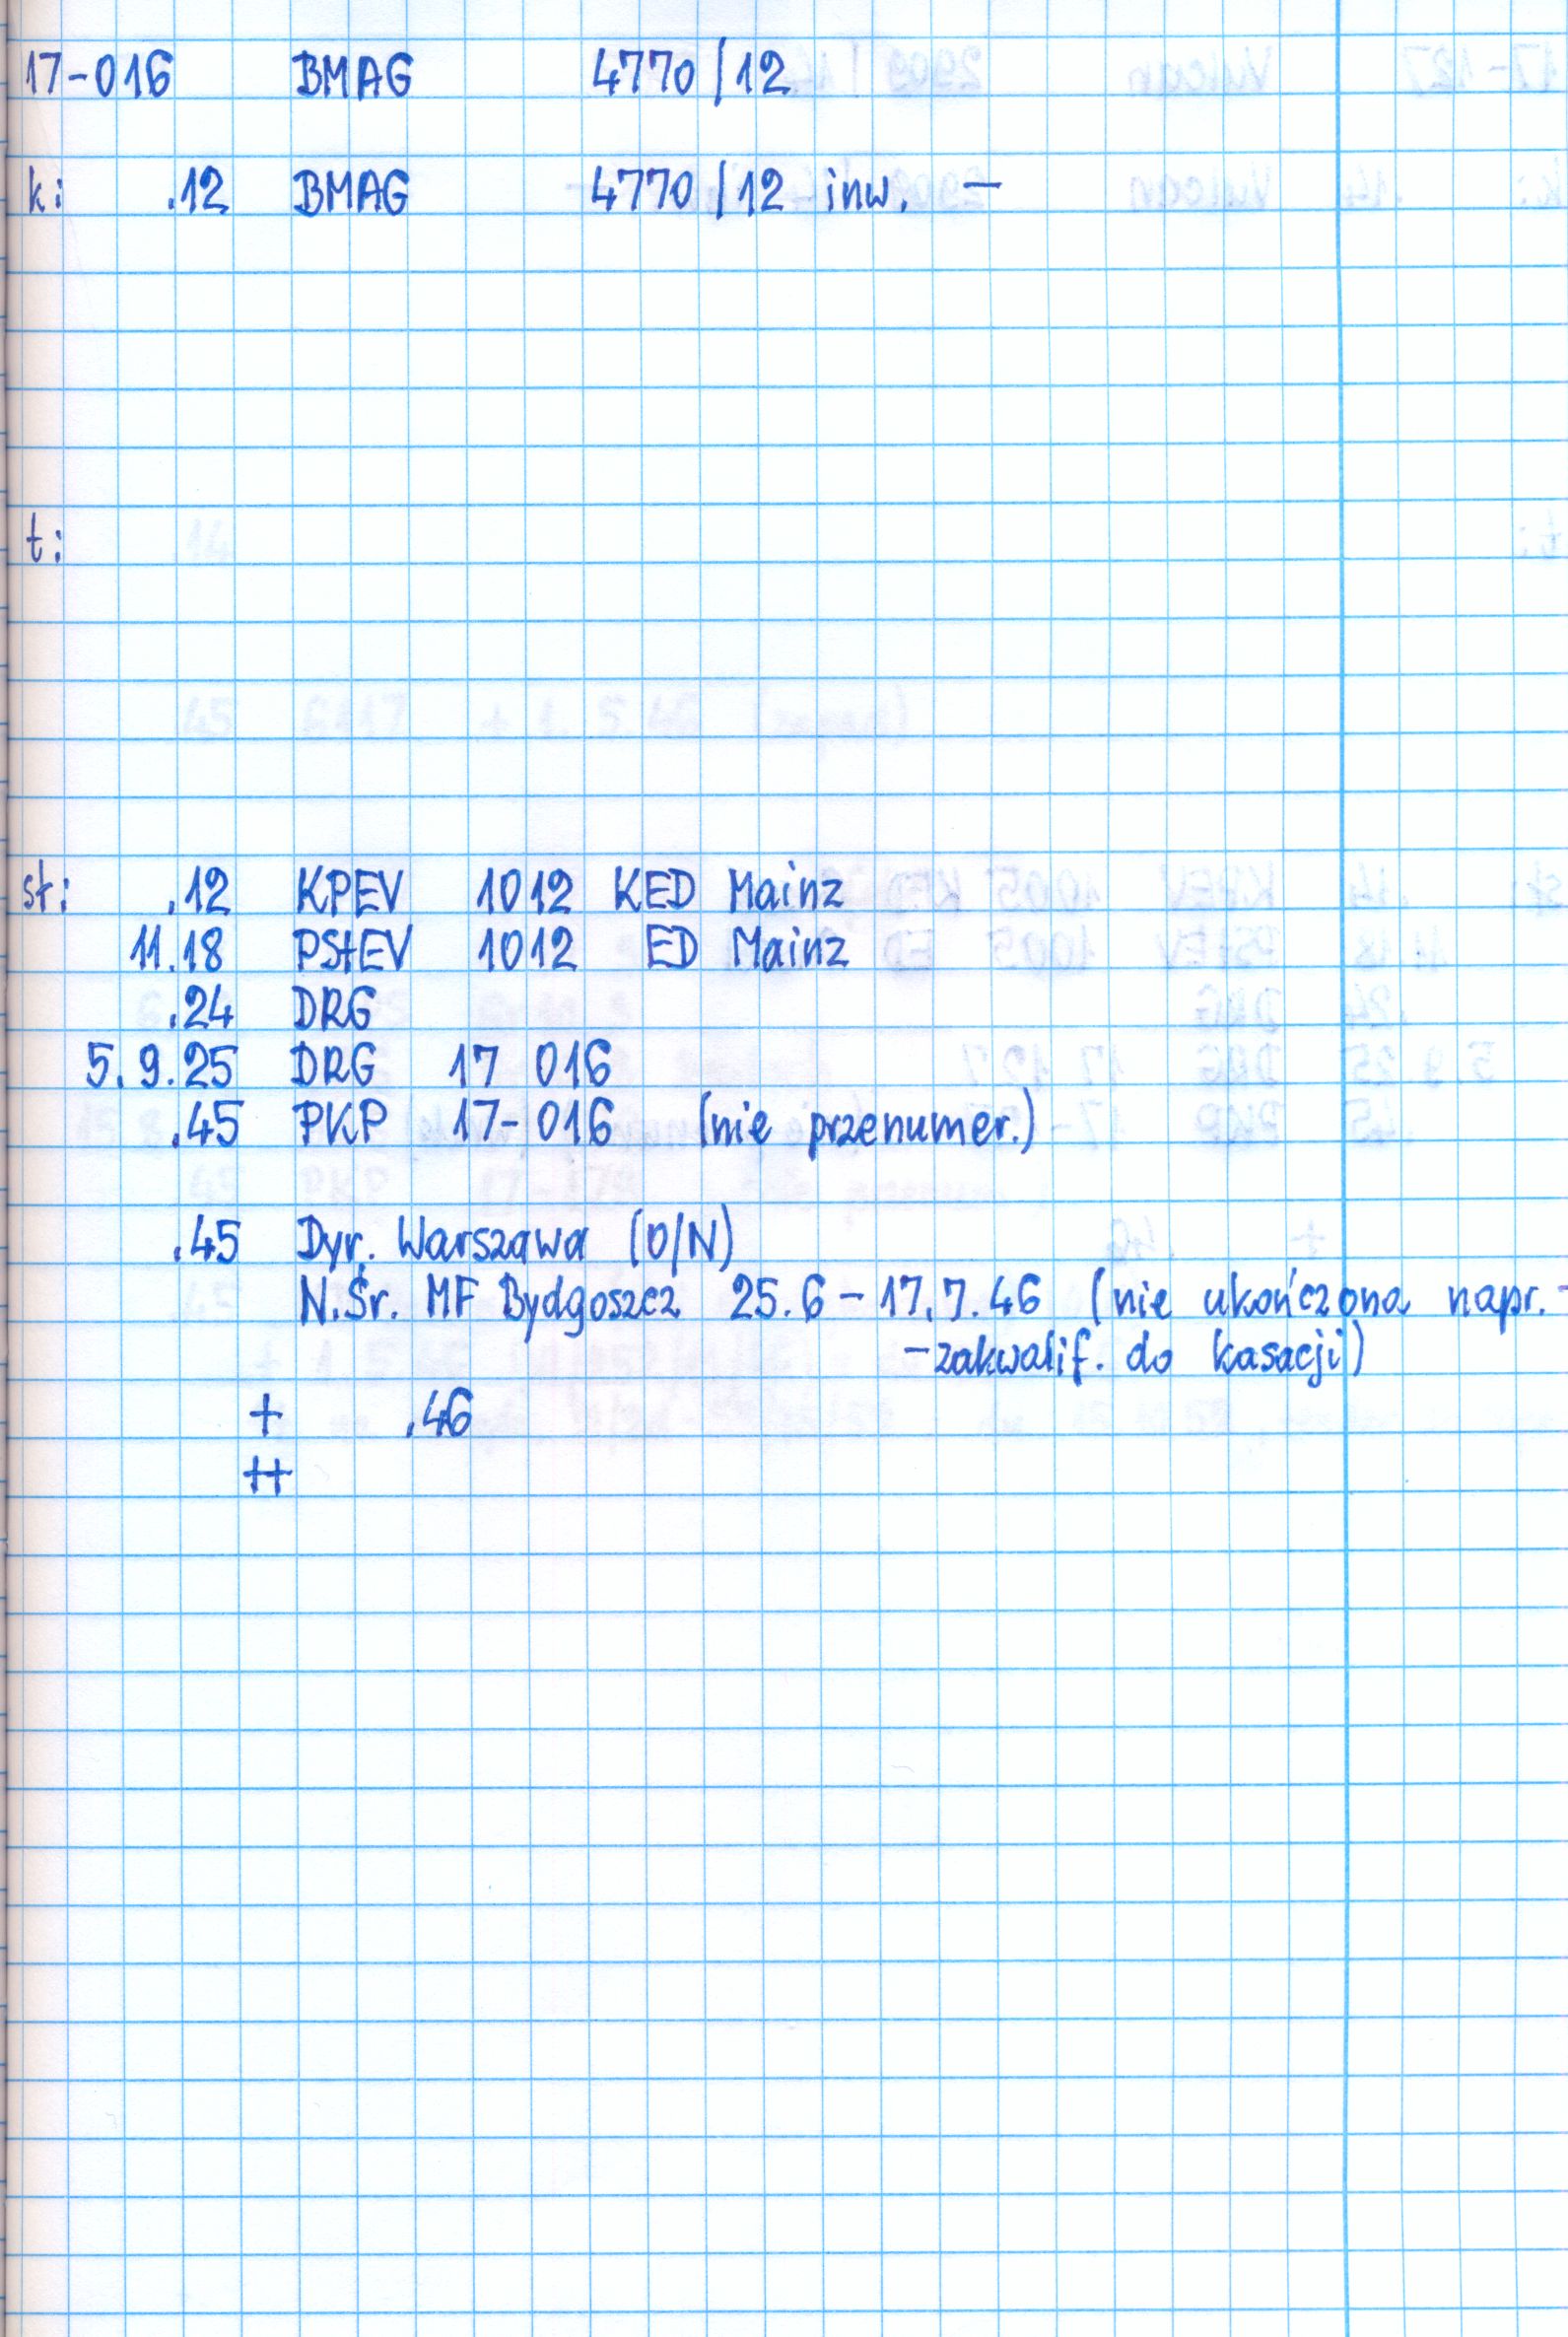 17-016 BMAG 4770/12
k: .12 BMAG 4770/12 inw. —
t:
st: .12 KPEV 1012 KED Mainz
11.18 PStEV 1012 ED Mainz
.24 DRG
5.9.25 DRG 17 016
.45 PKP 17-016 (nie przenumer.)
.45 Dyr. Warszawa (O/N)
N.Śr. MF Bydgoszcz 25.6-17.7.46 (nie ukończona napr.-
-zakwalif. do kasacji)
+ .46
++